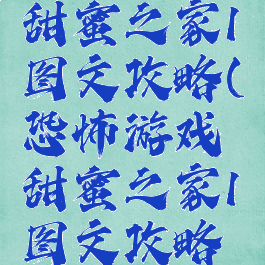 甜蜜之家1
图文攻略(
恐怖游戏
甜蜜之家1
图文攻略